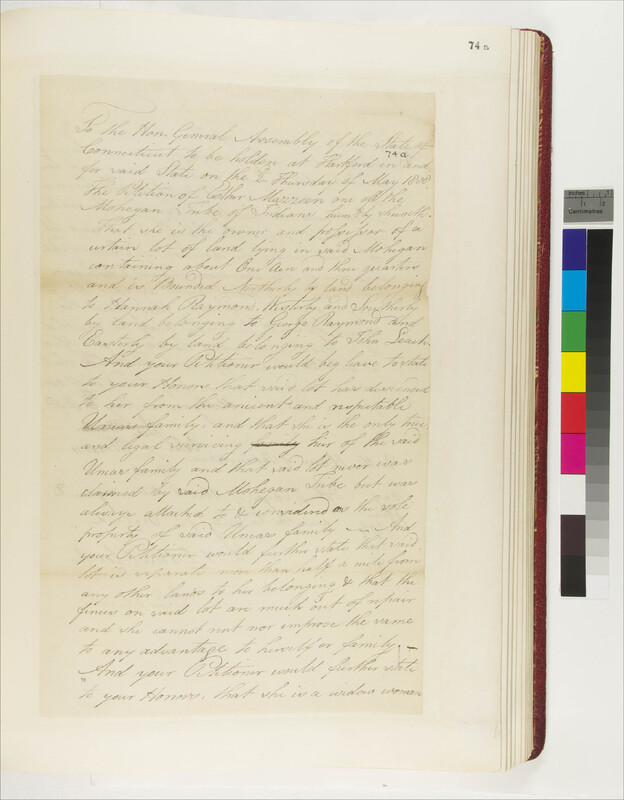 74 B
To the Hon. General Assembly of the State of
Connecticut to be holden at Hartford in and
74a
for said State on the Thursday of May 18
The Petition of Esther Mazzeen one of the
Mohegan Tribe of Indians humbly sheweth.
That she is the owner and possessor of a
certain lot of land lying in said Mohegan
containing about One Acre and three quarters
and is Bounded Northerly by land belonging
to Hannah Raymond, Westerly and Southerly
by land belonging to George Raymond and
Easterly by land belonging to John Leach.
And your Petitioner would beg leave to state
to your Honors that said lot has descended
to her from the ancient and respectable
Uncas family, and that she is the only true
and legal surviving heir of the said
Uncas family and that said lot never was
claimed by said Mohegan Tribe but was
always attached to & considered as the sole
property of said Uncas family — And
your Petitioner would further state that said
lot is separate more than half a mile from
any other lands to her belonging & that the
fences on said lot are much out of repair
and she cannot rent nor improve the same
to any advantage to herself or family. —
And your Petitioner would further state
to your Honors, that she is a widow woman
inches
1 2
Centimetres